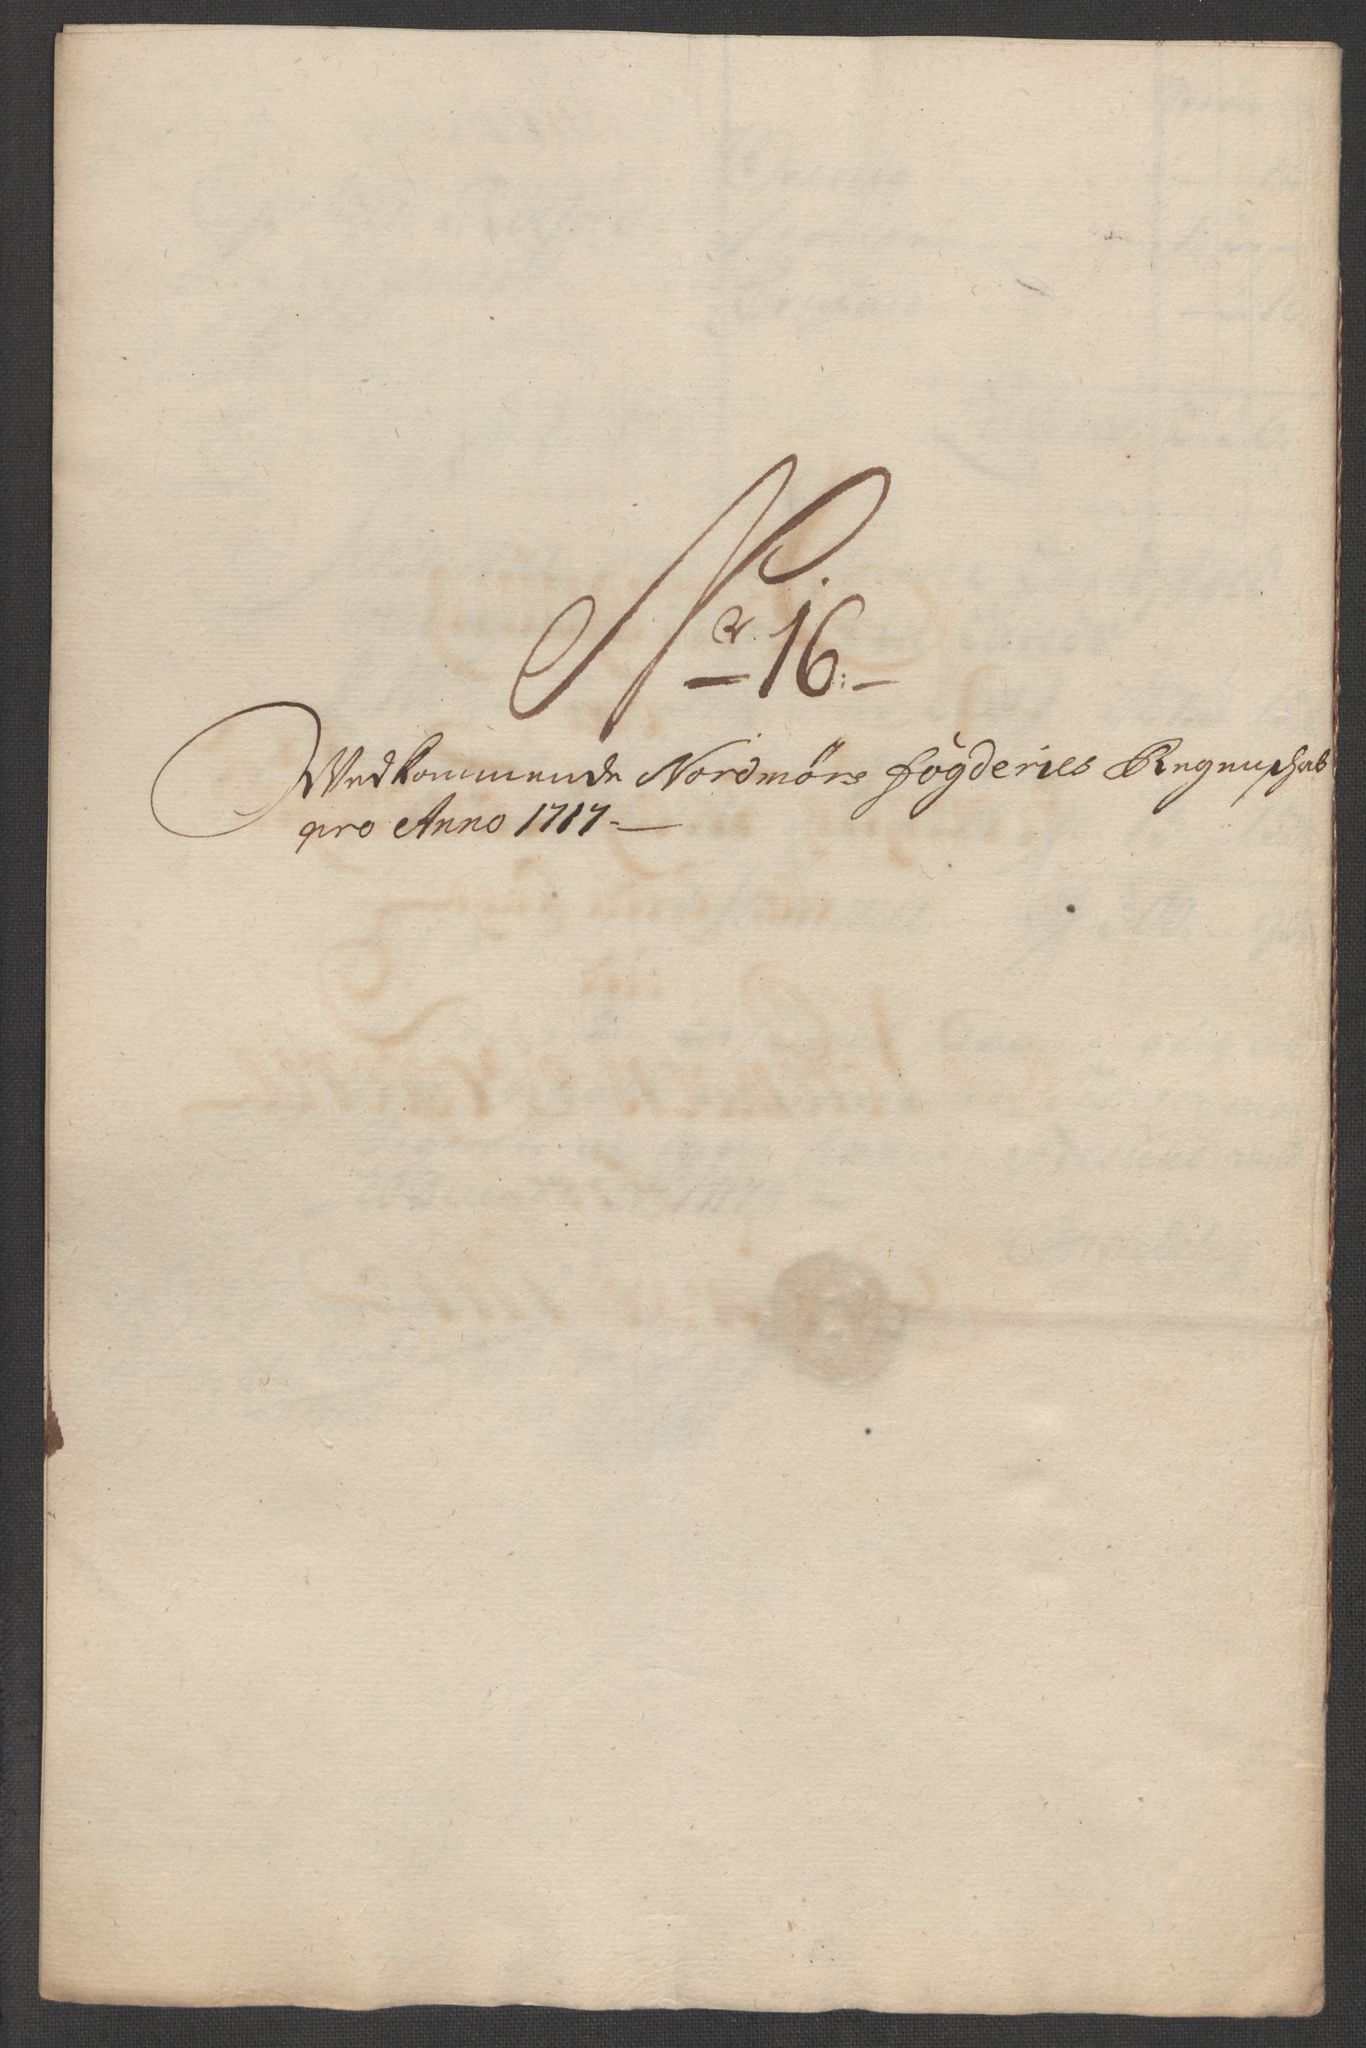 Nr. 16.
Vedkommende Nordmørs fogderies Regenschab
pro Anno 1717